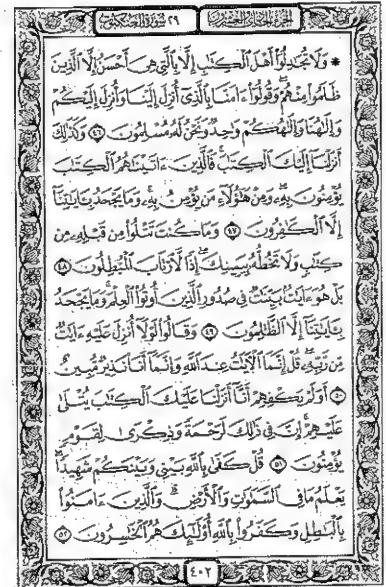 الجزء الحادي والعشرون ٢٩ سورة العنكبوت
* وَلَا تُجَٰدِلُوٓاْ أَهۡلَ ٱلۡكِتَٰبِ إِلَّا بِٱلَّتِي هِيَ أَحۡسَنُ إِلَّا ٱلَّذِينَ
ظَلَمُواْ مِنۡهُمۡۖ وَقُولُوٓاْ ءَامَنَّا بِٱلَّذِيٓ أُنزِلَ إِلَيۡنَا وَأُنزِلَ إِلَيۡكُمۡ
وَإِلَٰهُنَا وَإِلَٰهُكُمۡ وَٰحِدٞ وَنَحۡنُ لَهُۥ مُسۡلِمُونَ ٤٦ وَكَذَٰلِكَ
أَنزَلۡنَآ إِلَيۡكَ ٱلۡكِتَٰبَۚ فَٱلَّذِينَ ءَاتَيۡنَٰهُمُ ٱلۡكِتَٰبَ
يُؤۡمِنُونَ بِهِۦۖ وَمِنۡ هَٰٓؤُلَآءِ مَن يُؤۡمِنُ بِهِۦۚ وَمَا يَجۡحَدُ بِـَٔايَٰتِنَآ
إِلَّا ٱلۡكَٰفِرُونَ ٤٧ وَمَا كُنتَ تَتۡلُواْ مِن قَبۡلِهِۦ مِن
كِتَٰبٖ وَلَا تَخُطُّهُۥ بِيَمِينِكَۖ إِذٗا لَّٱرۡتَابَ ٱلۡمُبۡطِلُونَ ٤٨
بَلۡ هُوَ ءَايَٰتُۢ بَيِّنَٰتٞ فِي صُدُورِ ٱلَّذِينَ أُوتُواْ ٱلۡعِلۡمَۚ وَمَا يَجۡحَدُ
بِـَٔايَٰتِنَآ إِلَّا ٱلظَّٰلِمُونَ ٤٩ وَقَالُواْ لَوۡلَآ أُنزِلَ عَلَيۡهِ ءَايَٰتٞ
مِّن رَّبِّهِۦۚ قُلۡ إِنَّمَا ٱلۡأٓيَٰتُ عِندَ ٱللَّهِ وَإِنَّمَآ أَنَا۠ نَذِيرٞ مُّبِينٌ
٥٠ أَوَلَمۡ يَكۡفِهِمۡ أَنَّآ أَنزَلۡنَا عَلَيۡكَ ٱلۡكِتَٰبَ يُتۡلَىٰ
عَلَيۡهِمۡۚ إِنَّ فِي ذَٰلِكَ لَرَحۡمَةٗ وَذِكۡرَىٰ لِقَوۡمٖ
يُؤۡمِنُونَ ٥١ قُلۡ كَفَىٰ بِٱللَّهِ بَيۡنِي وَبَيۡنَكُمۡ شَهِيدٗاۖ
يَعۡلَمُ مَا فِي ٱلسَّمَٰوَٰتِ وَٱلۡأَرۡضِۗ وَٱلَّذِينَ ءَامَنُواْ
بِٱلۡبَٰطِلِ وَكَفَرُواْ بِٱللَّهِ أُوْلَٰٓئِكَ هُمُ ٱلۡخَٰسِرُونَ ٥٢
٤٠٢